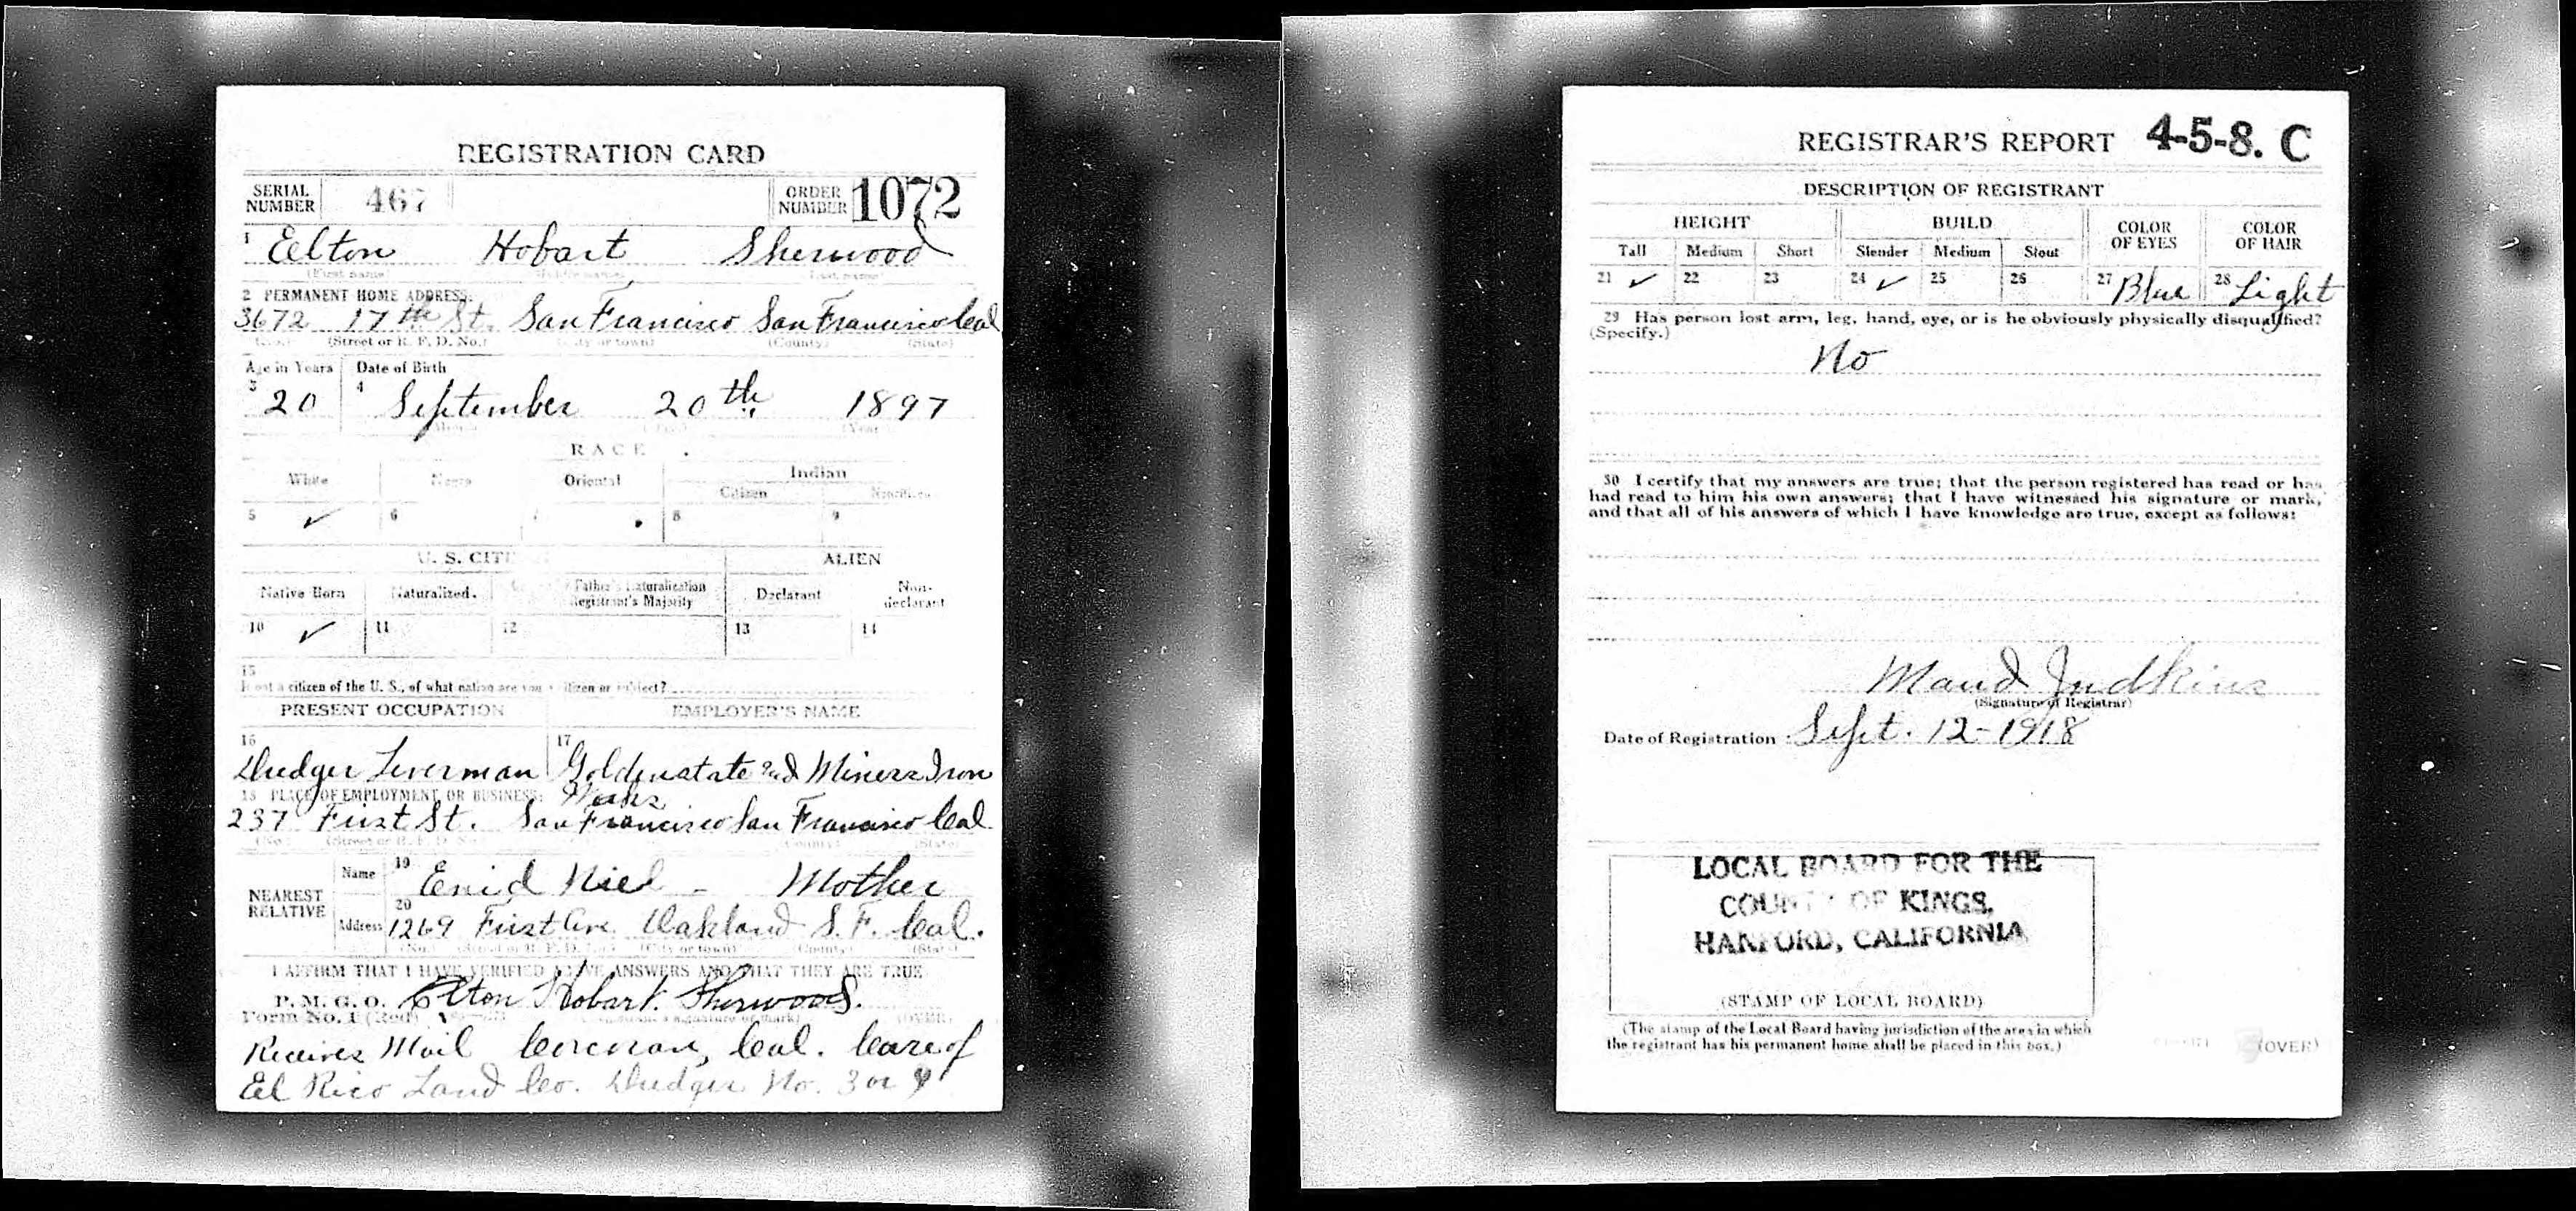 REGISTRATION CARD
SERIAL NUMBER 467 ORDER NUMBER 1072
1 Eelton Hobart Sherwood
(First name) (Middle name) (Last name)
2 PERMANENT HOME ADDRESS:
3672 17th St. San Francisco San Francisco Cal
(No.) (Street or R. F. D. No.) (City or town) (County) (State)
Age in Years Date of Birth
3 20 4 September 20th 1897
(Month) (Day) (Year)
RACE
White Negro Oriental Indian
Citizen Noncitizen
5 ✓ 6 7 8 9
U. S. CITI ALIEN
Native Born Naturalized. Father's Naturalization Registrant's Majority Declarant Non-declarant
10 ✓ 11 12 13 14
15
If not a citizen of the U. S., of what nation are you a citizen or subject?
PRESENT OCCUPATION EMPLOYER'S NAME
16 Dredger Leverman 17 Goldenstate and Miners Iron Works
18 PLACE OF EMPLOYMENT OR BUSINESS:
237 First St. San Francisco San Francisco Cal.
(No.) (Street or R. F. D. No.) (County) (State)
NEAREST RELATIVE
Name 19 Enid Niel - Mother
Address 20 1269 First Ave. Oakland S. F. Cal.
(No.) (Street or R. F. D. No.) (City or town) (County) (State)
I AFFIRM THAT I HAVE VERIFIED ABOVE ANSWERS AND THAT THEY ARE TRUE
P. M. G. O. Elton Hobart Sherwood.
Form No. 1 (Red) (Registrant's signature or mark) (OVER)
Receives Mail Corcoran, Cal. Care of
El Rico Land Co. Dredger No. 3 or 4
REGISTRAR'S REPORT 4-5-8. C
DESCRIPTION OF REGISTRANT
HEIGHT BUILD COLOR OF EYES COLOR OF HAIR
Tall Medium Short Slender Medium Stout
21 ✓ 22 23 24 ✓ 25 26 27 Blue 28 Light
29 Has person lost arm, leg, hand, eye, or is he obviously physically disqualified?
(Specify.)
No
30 I certify that my answers are true; that the person registered has read or has
had read to him his own answers; that I have witnessed his signature or mark,
and that all of his answers of which I have knowledge are true, except as follows:
Maud Judkins
(Signature of Registrar)
Date of Registration Sept. 12-1918
LOCAL BOARD FOR THE
COUNTY OF KINGS,
HANFORD, CALIFORNIA
(STAMP OF LOCAL BOARD)
(The stamp of the Local Board having jurisdiction of the area in which
the registrant has his permanent home shall be placed in this box.)
(OVER)